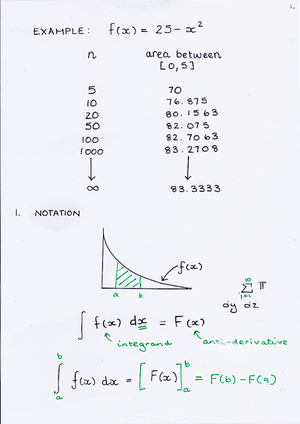 1.
EXAMPLE: f(x) = 25 - x²
n area between [0,5]
5 70
10 76.875
20 80.1563
50 82.075
100 82.7063
1000 83.2708
∞ 83.3333
1. NOTATION
f(x)
a b
∞
Σ π
i=1
dy dz
∫ f(x) dx = F(x)
integrand anti-derivative
b
∫ f(x) dx = [F(x)]ᵇₐ = F(b) - F(a)
a